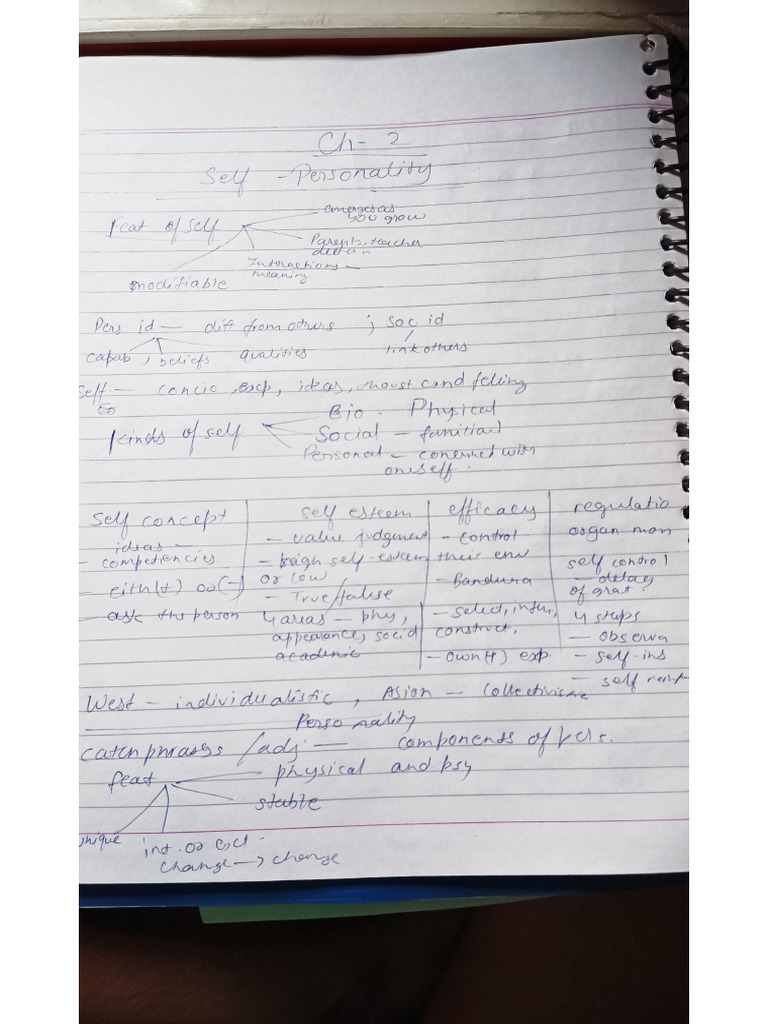 Ch- 2
Self - Personality
Feat of self
emerges as
you grow
Parents, teacher
Interactions —
meaning
modifiable
Pers id — diff from others ; Soc id
capab, beliefs qualities link others
Self — , exp, ideas, and felling
Kinds of self
Bio - Physical
Social - familial
Personal - with
oneself.
Self concept
ideas —
- competencies
- eith(+) or(-)
- ask the person
Self esteem
- value judgment
- high self-esteem
or low
- True/false
4 areas - phy,
appearance, social
academic
efficacy
- control
their env
- Bandura
- select,
construct,
- own(+) exp
regulatio
organ mon
self control
- delay
of grat.
4 steps
- observa
- self-ins
- self
West - individualistic, Asian - Collectivistic
Personality
Catch phrases / adj — components of pers.
feat
physical and psy
stable
unique
int. or ext.
change → change